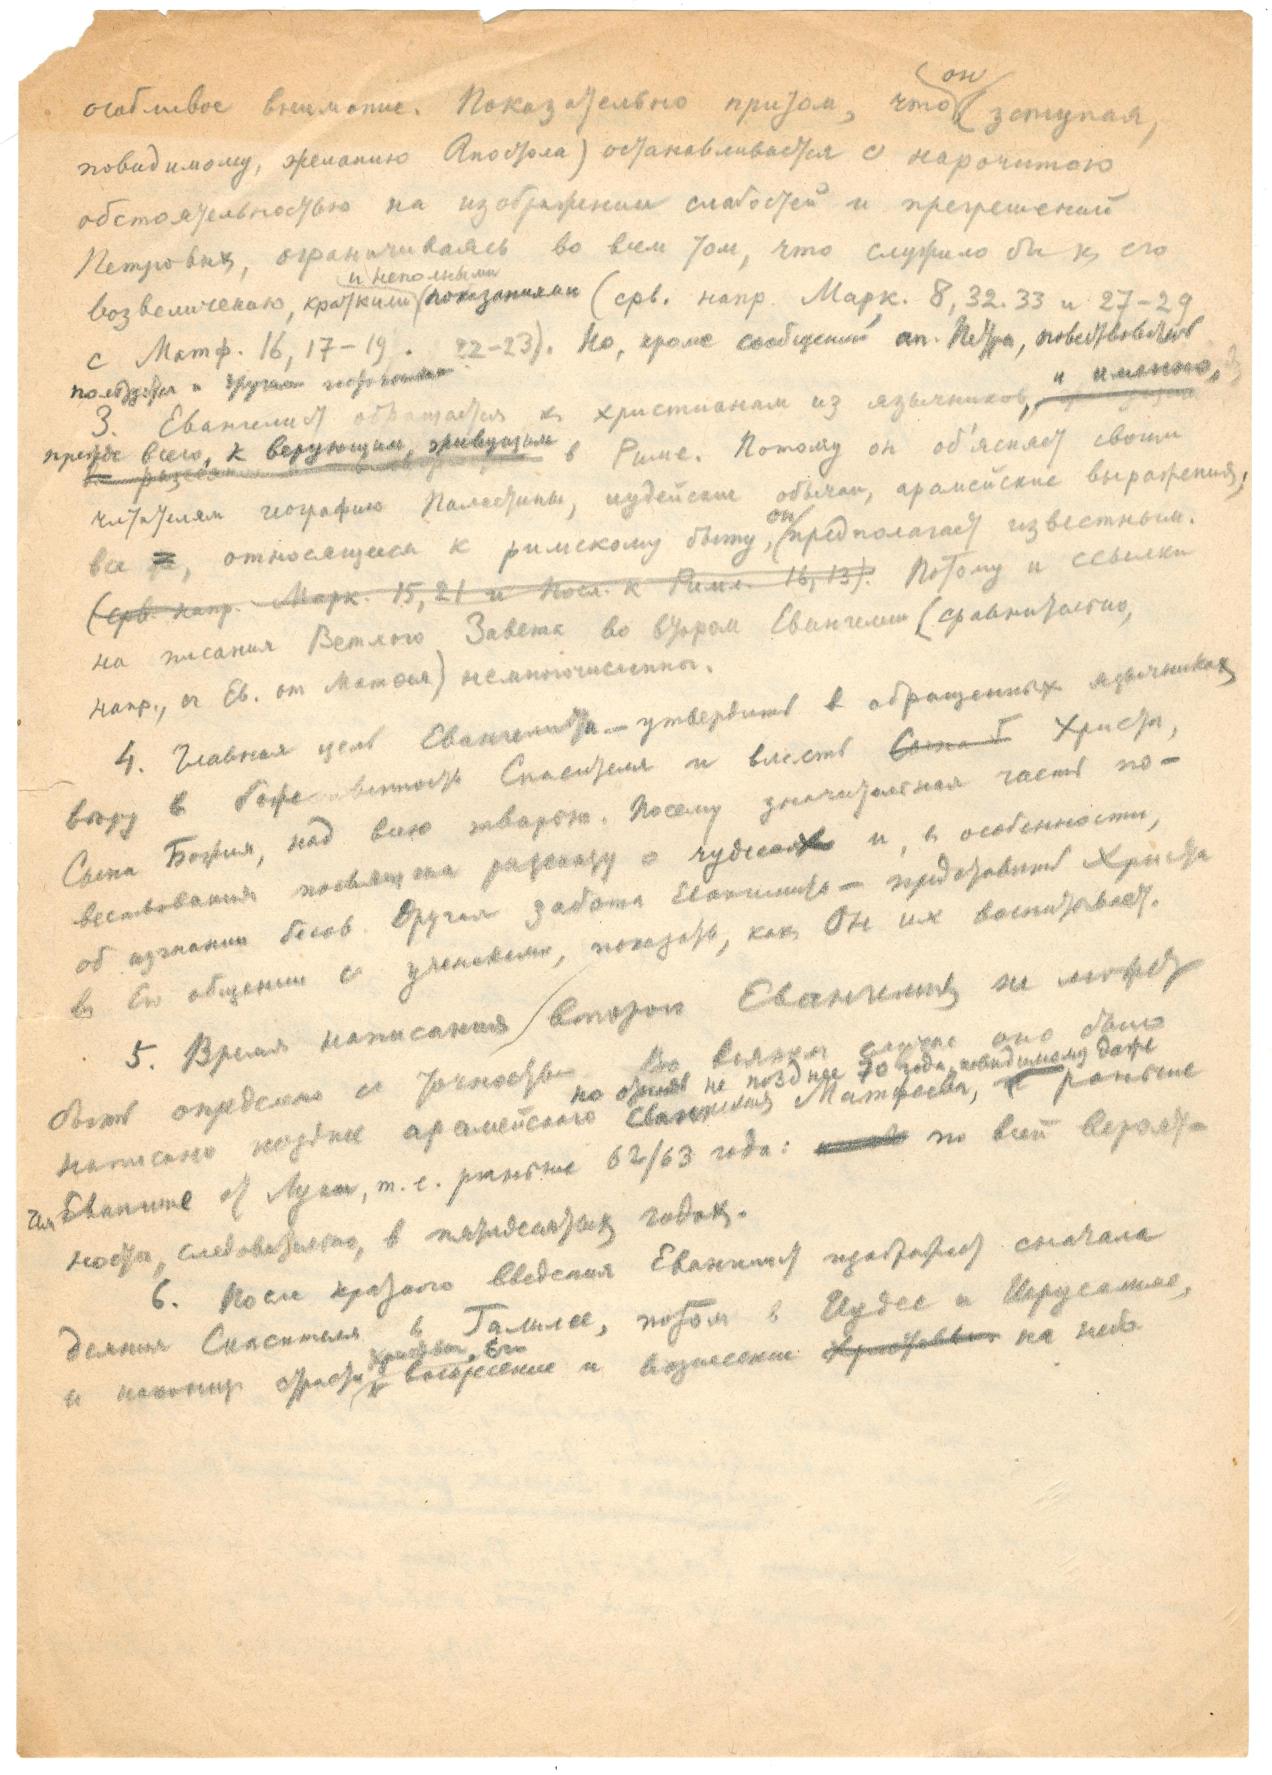 он
особливое внимание. Показательно притом, что (уступая,
повидимому, желанию Апостола) останавливается с нарочитою
обстоятельностью на изображении слабостей и прегрешений
Петровых, ограничиваясь во всем том, что служило бы к его
и неполными
возвеличению, краткими показаниями (срв. напр. Марк. 8, 32.33 и 27-29
с Матф. 16, 17-19. 22-23). Но, кроме сообщений ап. Петра, повествователь
пользуется и другими
3. Евангелист обращается к христианам из язычников, и именно,
прежде всего, к верующим, живущим в Риме. Потому он об'ясняет своим
читателям географию Палестины, иудейские обычаи, арамейские выражения;
он
все, относящееся к римскому быту, предполагает известным.
(срв. напр. Марк. 15, 21 и Посл. к Римл. 16, 13). Потому и ссылки
на писания Ветхого Завета во втором Евангелии (сравнительно,
напр., с Ев. от Матфея) немногочисленны.
4. Главная цель Евангелиста - утвердить в обращенных язычниках
веру в божественность Спасителя и власть Сына Христа,
Сына Божия, над всею тварью. Посему значительная часть по-
вествования посвящена рассказу о чудесах и, в особенности,
об изгнании бесов. Другая забота Евангелиста - представить Христа
в Его общении с учениками, показать, как Он их воспитывает.
5. Время написания второго Евангелия не может
быть определено с точностью. Во всяком случае оно было
но отнюдь не позднее 70 года, повидимому даже
написано позднее арамейского Евангелия Матфеева, раньше
Евангелия от Луки, т.е. раньше 62/63 года: по всей вероят-
ности, следовательно, в пятидесятых годах.
6. После краткого введения Евангелист изображает сначала
деяния Спасителя в Галилее, потом в Иудее и Иерусалиме,
Христовы, Его
и наконец страсти воскресение и вознесение Христовы на небо